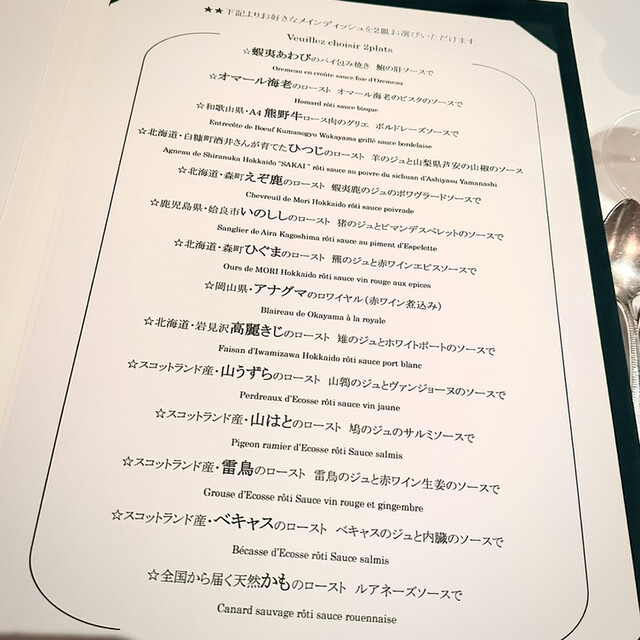 ★★下記よりお好きなメインディッシュを2皿お選びいただけます
Veuillez choisir 2plats
☆蝦夷あわびのパイ包み焼き 鮑の肝ソースで
Oremeau en croûte sauce foie d'Oremeau
☆オマール海老のロースト オマール海老のビスクのソースで
Homard rôti sauce bisque
☆和歌山県・A4 熊野牛ロース肉のグリエ ボルドレーズソースで
Entrecôte de Boeuf Kumanogyu Wakayama grillé sauce bordelaise
☆北海道・白糠町酒井さんが育てたひつじのロースト 羊のジュと山梨県芦安の山椒のソース
Agneau de Shiranuka Hokkaido "SAKAI" rôti sauce au poivre du sichuan d'Ashiyasu Yamanashi
☆北海道・森町えぞ鹿のロースト 蝦夷鹿のジュのポワヴラードソースで
Chevreuil de Mori Hokkaido rôti sauce poivrade
☆鹿児島県・姶良市いのししのロースト 猪のジュとピマンデスペレットのソースで
Sanglier de Aira Kagoshima rôti sauce au piment d'Espelette
☆北海道・森町ひぐまのロースト 熊のジュと赤ワインエピスソースで
Ours de MORI Hokkaido rôti sauce vin rouge aux epices
☆岡山県・アナグマのロワイヤル（赤ワイン煮込み）
Blaireau de Okayama à la royale
☆北海道・岩見沢高麗きじのロースト 雉のジュとホワイトポートのソースで
Faisan d'Iwamizawa Hokkaido rôti sauce port blanc
☆スコットランド産・山うずらのロースト 山鶉のジュとヴァンジョーヌのソースで
Perdreaux d'Ecosse rôti sauce vin jaune
☆スコットランド産・山はとのロースト 鳩のジュのサルミソースで
Pigeon ramier d'Ecosse rôti Sauce salmis
☆スコットランド産・雷鳥のロースト 雷鳥のジュと赤ワイン生姜のソースで
Grouse d'Ecosse rôti Sauce vin rouge et gingembre
☆スコットランド産・ベキャスのロースト ベキャスのジュと内臓のソースで
Bécasse d'Ecosse rôti Sauce salmis
☆全国から届く天然かものロースト ルアネーズソースで
Canard sauvage rôti sauce rouennaise